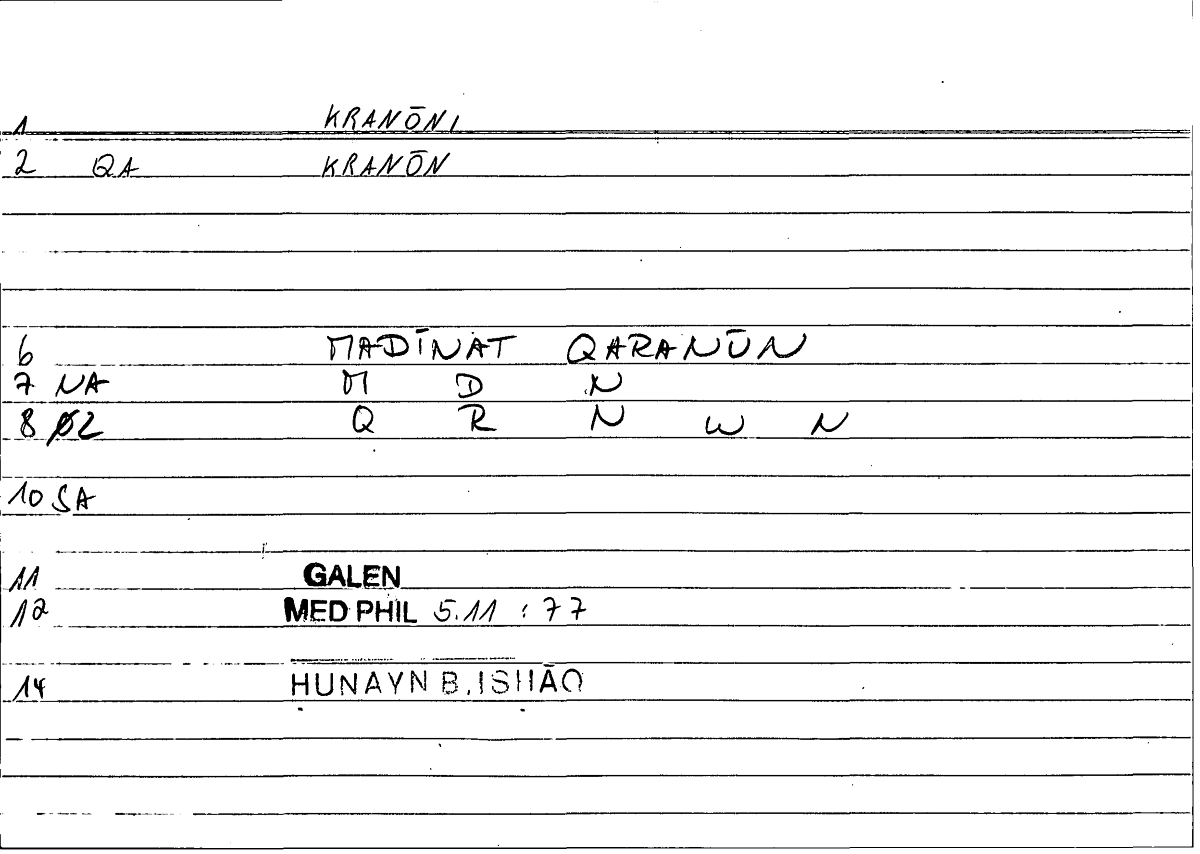 1 KRANŌNI
2 QA KRANŌN
6 MADĪNAT QARANŪN
7 NA M D N
8 ØZ Q R N W N
10 SA
11 GALEN
12 MED PHIL 5.11 : 77
14 ḤUNAYN B. ISḤĀQ